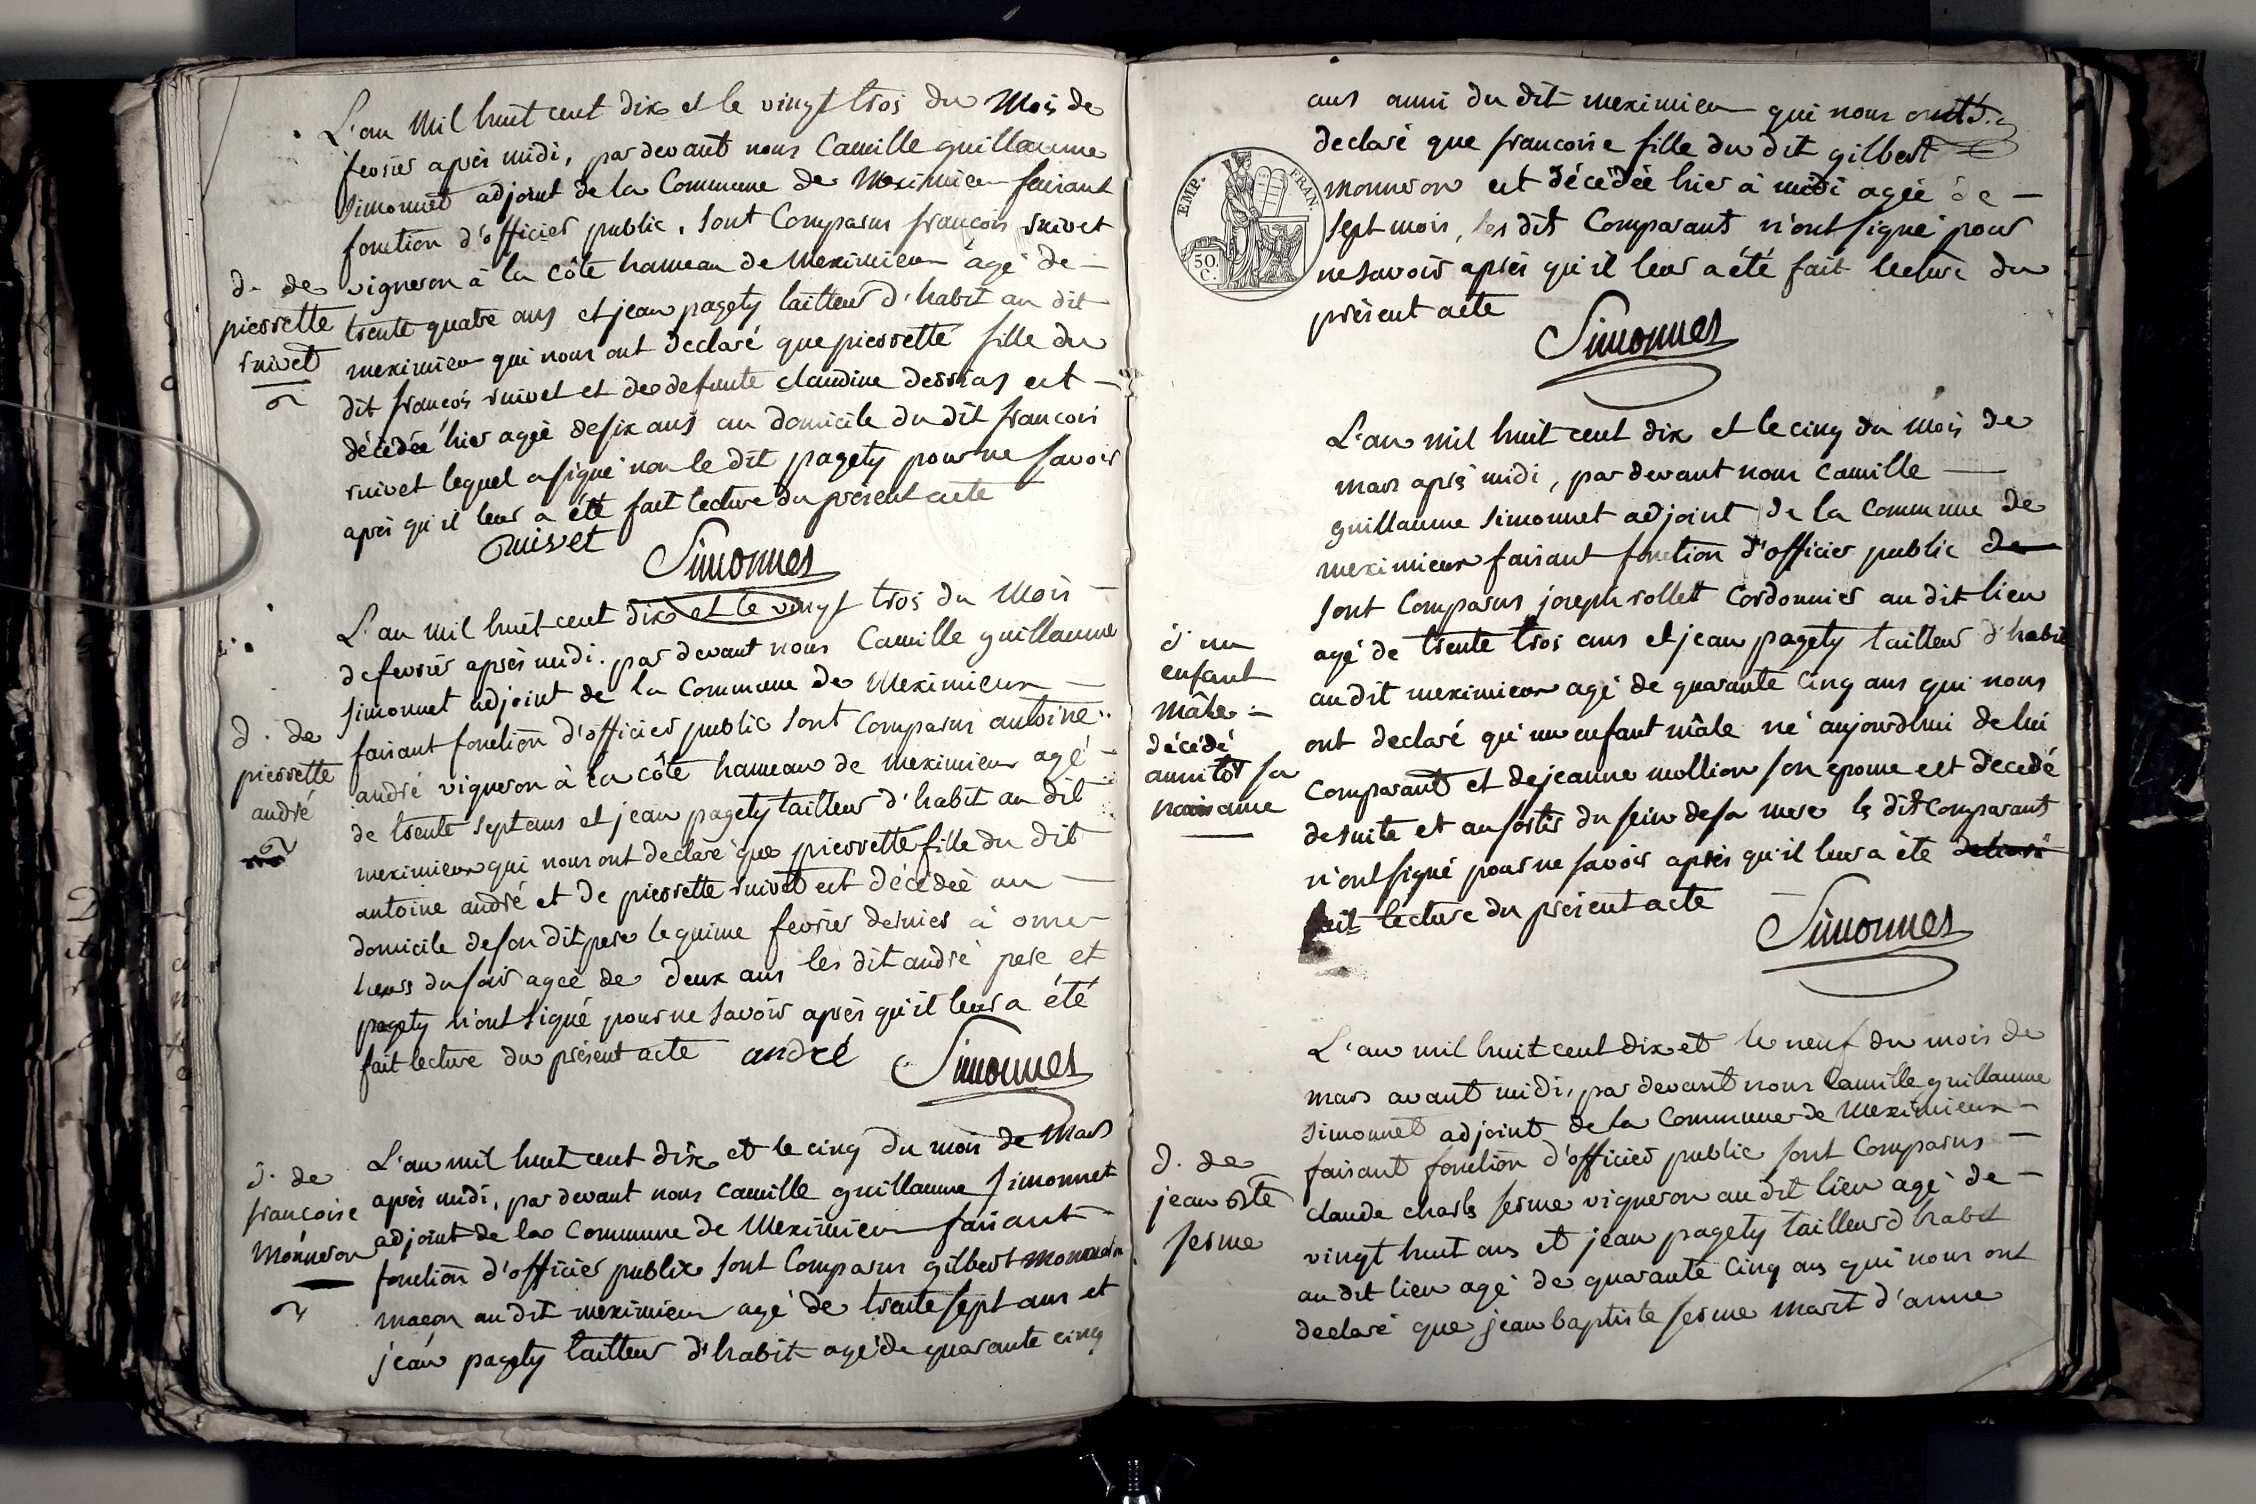 L'an mil huit cent dix et le vingt trois du Mois de
fevrier après midi, par devant nous Camille guillaume
simonnet adjoint de la Commune de Meximieux faisant
fonction d'officier public, sont Comparus françois ruivet
vigneron à la côte hameau de Meximieux âgé de
trente quatre ans et jean pagety tailleur d'habit au dit
meximieux qui nous ont declaré que pierrette fille du
dit françois ruivet et de defunte claudine dessias est
décédée hier agée de six ans au domicile du dit françois
ruivet lequel a signé non le dit pagety pour ne savoir
après qu'il leur a été fait lecture du présent acte
d. de
pierrette
ruivet
Ruivet
Simonnet
L'an mil huit cent dix et le vingt trois du Mois
de fevrier après midi. par devant nous Camille guillaume
simonnet adjoint de la Commune de Meximieux
faisant fonction d'officier public sont Comparus antoine
andré vigneron à la côte hameau de meximieux agé
de trente sept ans et jean pagety tailleur d'habit au dit
meximieux qui nous ont declaré que pierrette fille du dit
antoine andré et de pierrette ruivet est décédée au
domicile de son dit pere le quinze fevrier dernier à onze
heurs du soir agée de deux ans les dit andré pere et
pagety n'ont signé pour ne savoir après qu'il leur a été
fait lecture du présent acte andré
d. de
pierrette
andré
Simonnet
L'an mil huit cent dix et le cinq du mois de Mars
après midi, par devant nous Camille guillaume simonnet
adjoint de la Commune de Meximieux faisant
fonction d'officier public sont Comparus gilbert monneron
maçon au dit meximieux agé de trente sept ans et
jean pagety tailleur d'habit agé de quarante cinq
d. de
françoise
Monneron
ans aussi du dit meximieux qui nous ont
declaré que françoise fille du dit gilbert
monneron est décédée hier à midi agée de
sept mois, les dit Comparants n'ont signé pour
ne savoir après qu'il leur a été fait lecture du
présent acte
EMP. FRAN.
50.
C.
Simonnet
L'an mil huit cent dix et le cinq du mois de
mars après midi, par devant nous Camille
guillaume simonnet adjoint de la Commune de
meximieux faisant fonction d'officier public de
sont Comparus joseph rollet Cordonnier au dit lieu
agé de trente trois ans et jean pagety tailleur d'habit
au dit meximieux agé de quarante Cinq ans qui nous
ont declaré qu'un enfant mâle né aujourdhui de lui
Comparant et de jeanne mollion son epouse est decedé
de suite et au sortir du sein de sa mere les dit comparant
n'ont signé pour ne savoir après qu'il leur a été
fait lecture du présent acte
d'un
enfant
mâle
décédé
aussitôt sa
naissance
Simonnet
L'an mil huit cent dix et le neuf du mois de
mars avant midi, par devant nous Camille guillaume
simonnet adjoint de la Commune de Meximieux
faisant fonction d'officier public sont Comparus
claude charls serme vigneron au dit lieu agé de
vingt huit ans et jean pagety tailleur d'habit
au dit lieu agé de quarante Cinq ans qui nous ont
declaré que jean baptiste serme mari d'anne
d. de
jean bte
serme